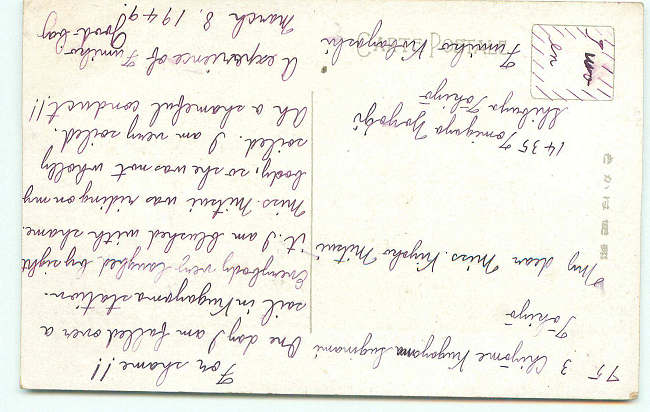 For shame!!
One day I am failed over a
soil in Kugayama station.
Everybody very laughed by sight
it. I am blushed with shame.
Miss. Mitsui was riding on my
body, so she was not wholly
soiled. I am very soiled.
Ah a shameful conduct!!
A experience of Fumiko
Good-bay
March 8, 1949.
75 3 Chiyōme Kugayama Suginami
Tokiyo
My dear Miss. Kiyoko Mitsui
1435 Tomigaya Yoyogi
Shibuya Tokiyo
Fumiko Kobayashi
CARTE POSTALE
two